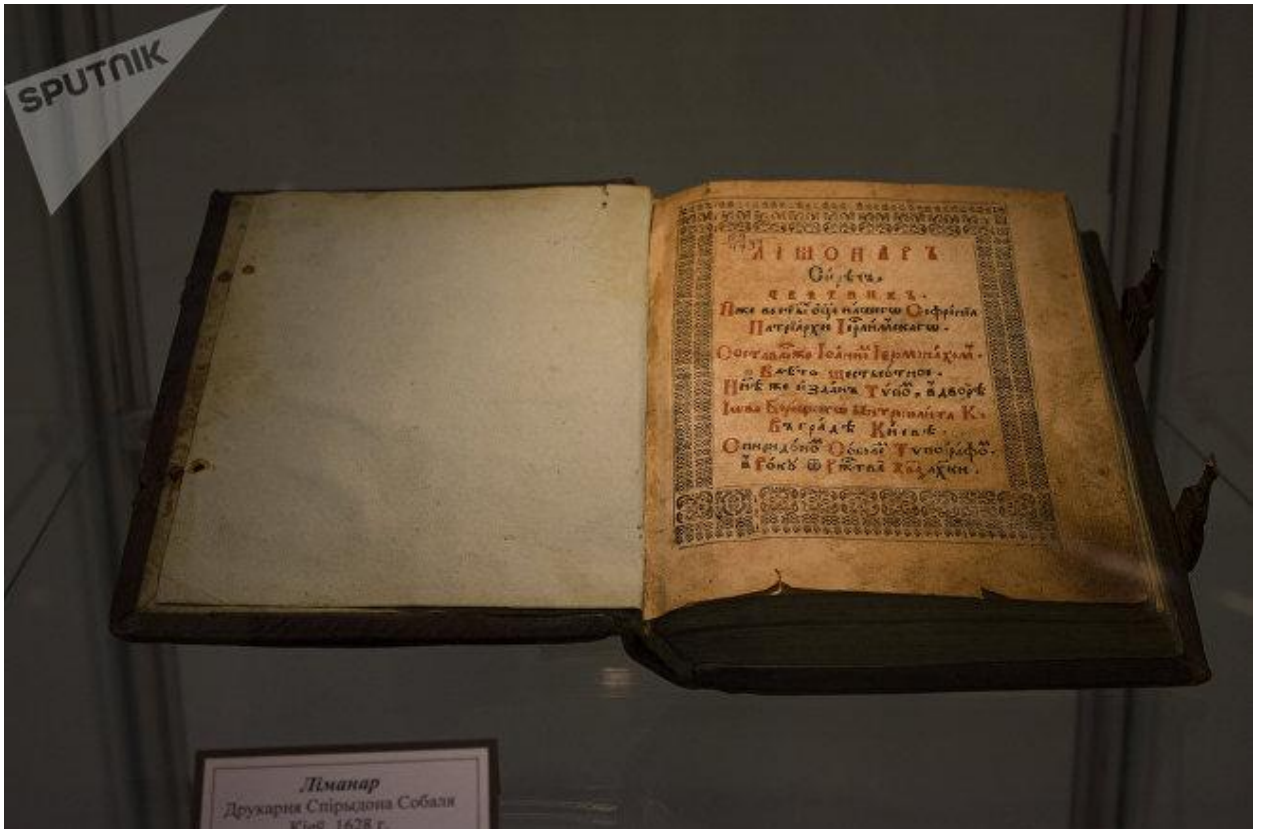 SPUTNIK
ЛІМОНАРЪ
Си́рѣчь,
ЦВѢТНИКЪ.
Иже во ст҃ы́хъ ѻ҆ц҃а на́шегѡ Софро́нїа
Патрїа́рхи Іерⷭ҇ли́мскагѡ.
Же Іѡа́нномъ Іеромона́хомъ.
В лѣ́то шестьсотное.
Нн҃ѣ же и҆зда́нъ Тѵ́по, в дворѣ
Іѡва Митрополи́та К.
Въ гра́дѣ Кі́евѣ.
Спиридо́номъ Со́болемъ Тѵпогра́фомъ.
в Ро́кꙋ ѿ Ржⷭ҇тва̀ ҂ахки.
Ліманар
Друкарня Спірыдона Собаля
Кіеў, 1628 г.